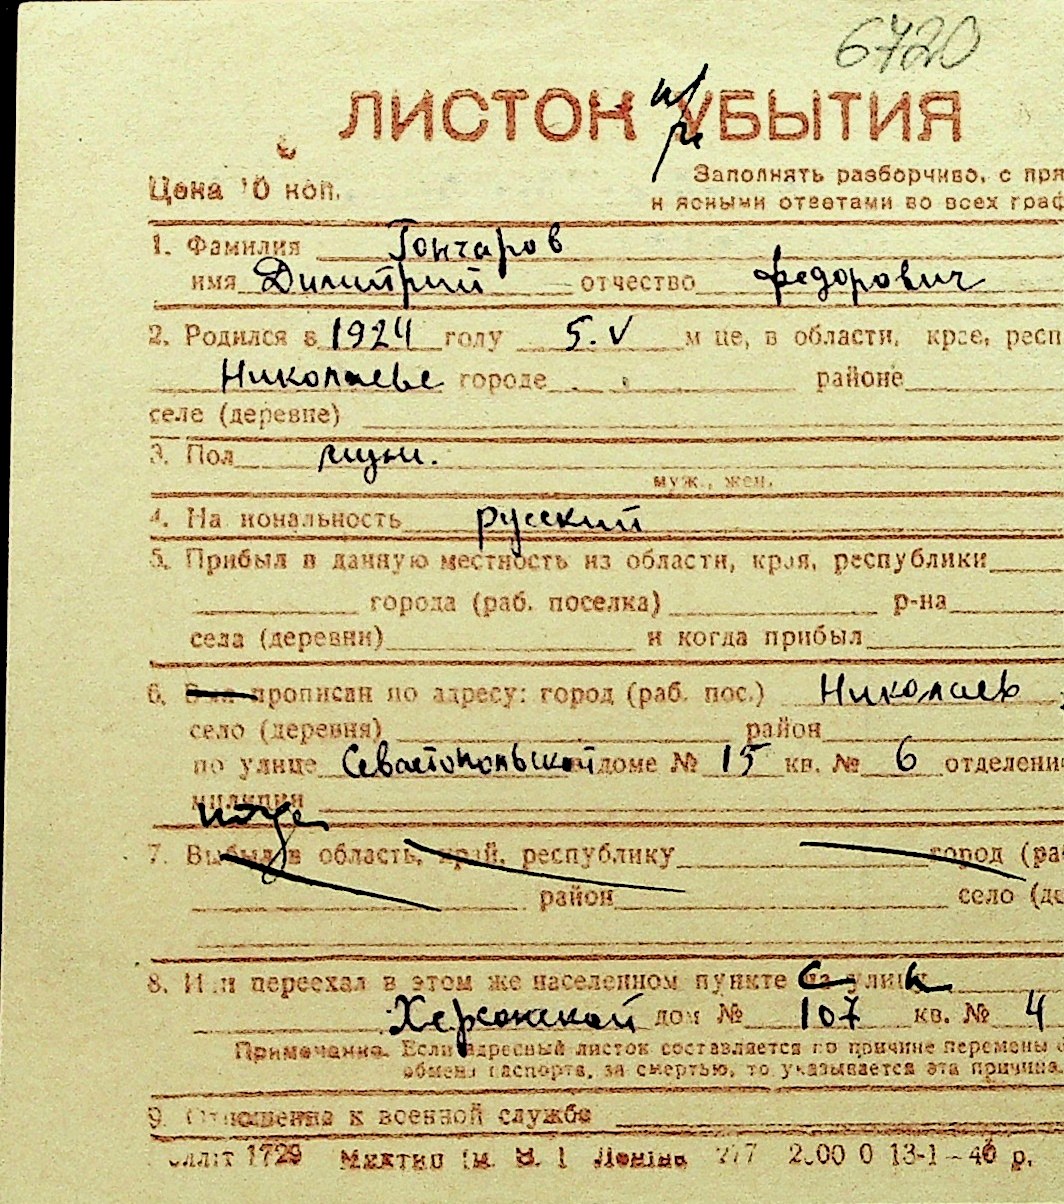 6720
ЛИСТОК УБЫТИЯ
при
Цена 10 коп.
Заполнять разборчиво, с пря
и ясными ответами во всех граф
1. Фамилия Гончаров
имя Димитрий отчество Федорович
2. Родился в 1924 году 5.V м це, в области, крае, респ
Николаеве городе районе
селе (деревне)
3. Пол муж.
муж., жен.
4. На иональность русский
5. Прибыл в данную местность из области, края, республики
города (раб. поселка) р-на
села (деревни) и когда прибыл
6. прописан по адресу: город (раб. пос.) Николаев
село (деревня) район
по улице Севастопольской доме № 15 кв. № 6 отделени
милиции
7. Выбыл в область, край, республику город (ра
район село (де
8. И и переехал в этом же населенном пункте с улиц
Херсонской дом № 107 кв. № 4
Примечание. Если адресный листок составляется по причине перемены
обмена паспорта, за смертью, то указывается эта причина.
9. Отношение к военной службе
1729 Леніна 2.00 0 13-1-46 р.